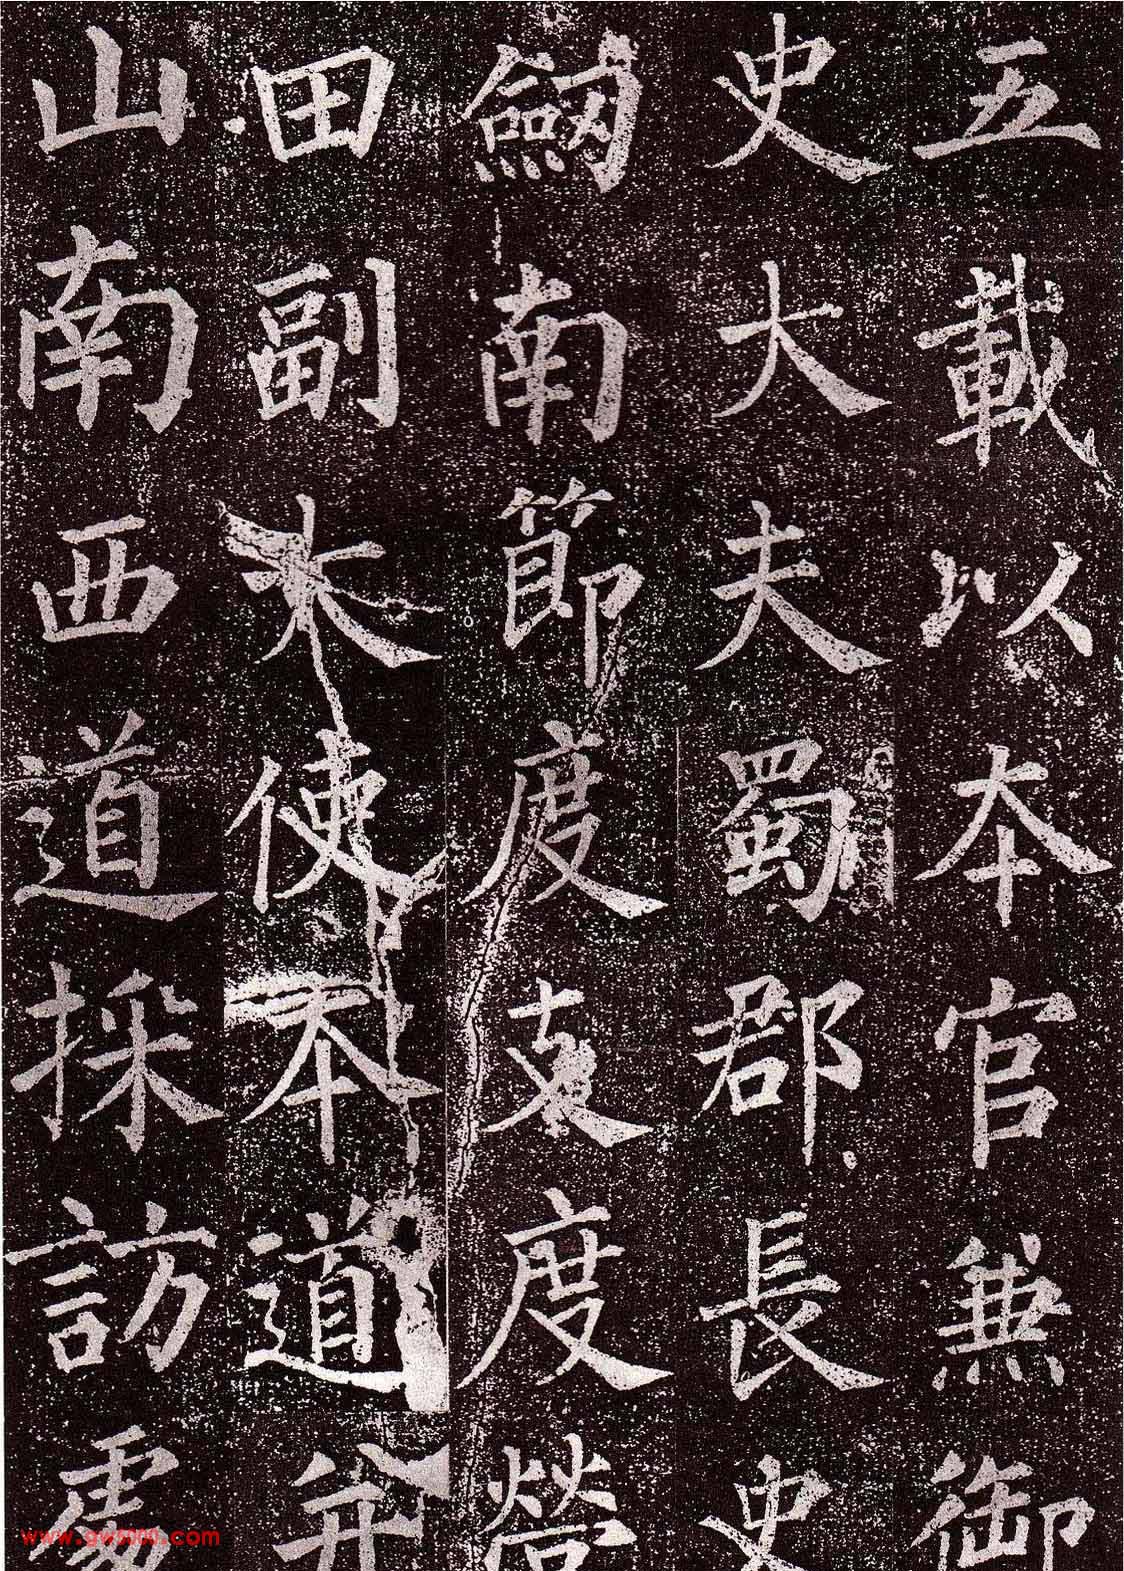 五載以本官兼御
史大夫蜀郡長史
劒南節度支度營
田副大使本道并
山南西道採訪處
www.gw5000.com